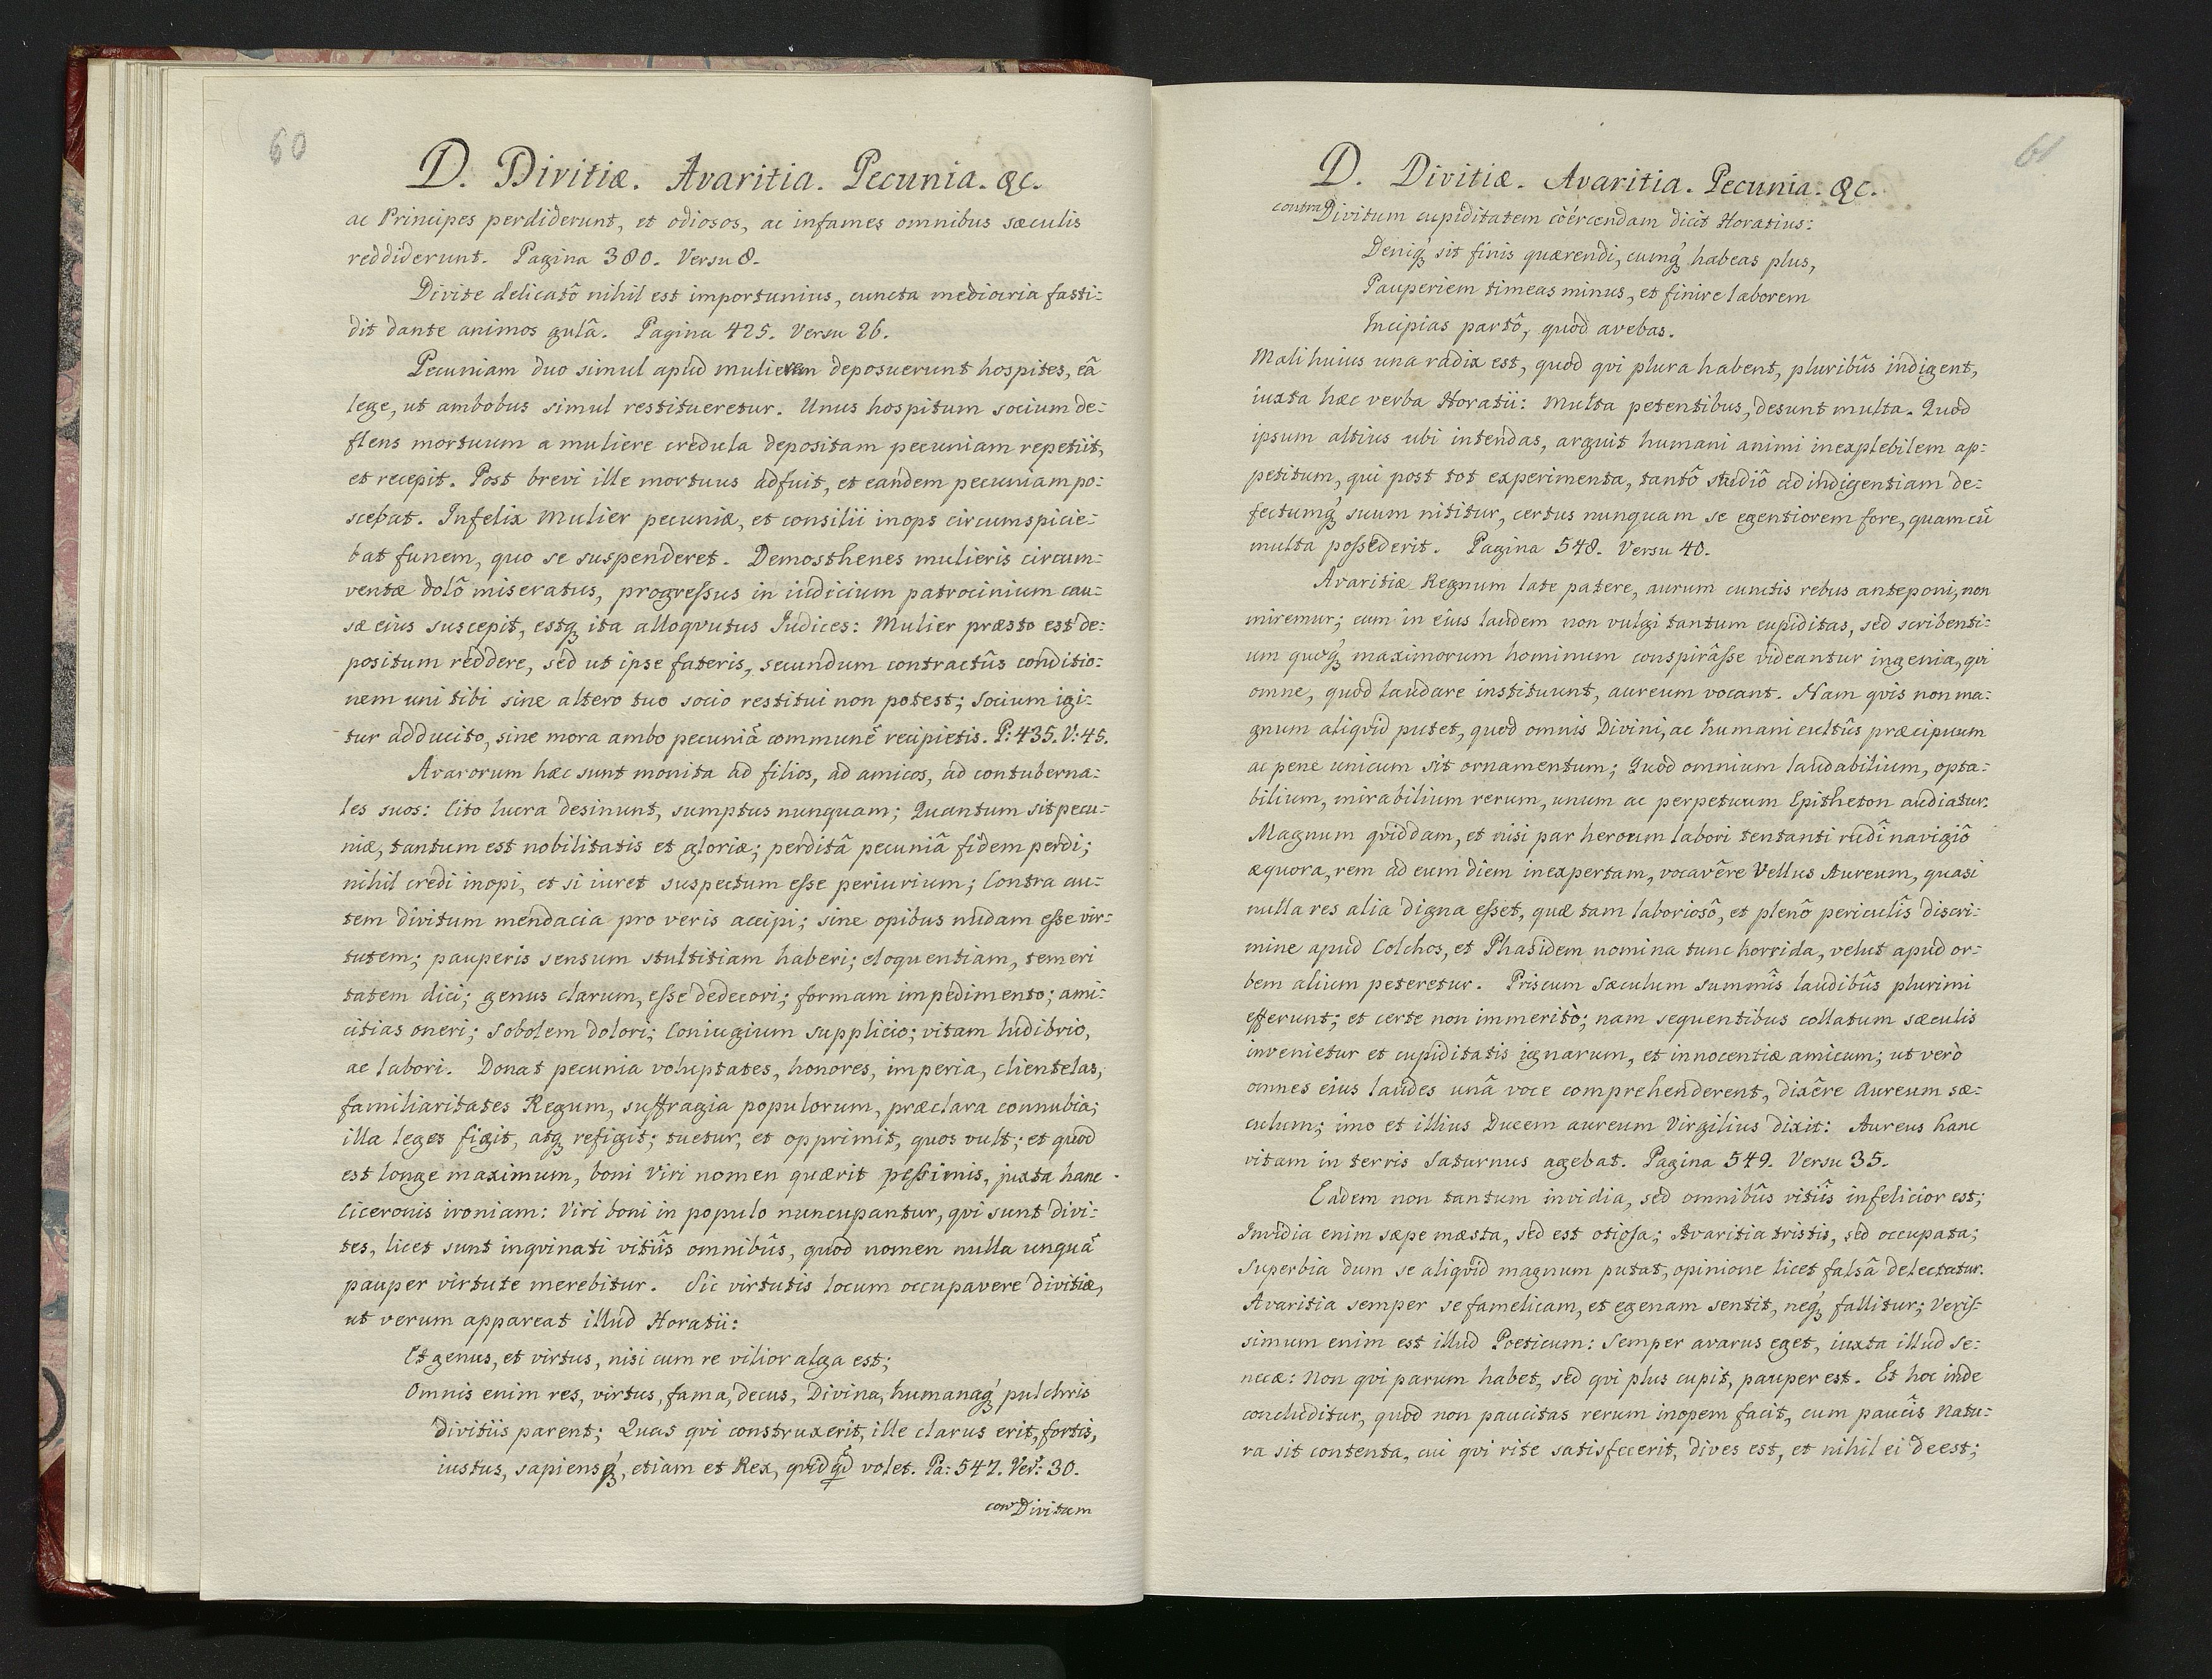 60
D. Divitiæ. Avaritia. Pecunia. &c.
ac Principes perdiderunt, et odiosos, ac infames omnibus sæculis
reddiderunt. Pagina 380. Versu 8.
Divite delicatô nihil est importunius, cuncta mediocria fasti:
dit dante animos gulâ. Pagina 425. Versu 26.
Pecuniam duo simul apud mulierem deposuerunt hospites, eâ
lege, ut ambobus simul restitueretur. Unus hospitum socium de:
flens mortuum a muliere credula depositam pecuniam repetiit,
et recepit. Post brevi ille mortuus adfuit, et eandem pecuniam po:
scebat. Infelix Mulier pecuniæ, et consilii inops circumspicie:
bat funem, quo se suspenderet. Demosthenes mulieris circum:
ventæ dolô miseratus, progreſsus in iudicium patrocinium cau:
sæ eius suscepit, estqꝫ ita alloqvutus Iudices: Mulier præsto est de:
positum reddere, sed ut ipse fateris, secundum contractûs conditio:
nem uni tibi sine altero tuo socio restitui non potest; socium igi:
tur adducito, sine mora ambo pecuniā communē recipietis. P: 435. V: 45.
Avarorum hæc sunt monita ad filios, ad amicos, ad contuberna:
les suos: Cito lucra desinunt, sumptus nunquam; Quantum sit pecu:
niæ, tantum est nobilitatis et gloriæ; perditâ pecuniâ fidem perdi;
nihil credi inopi, et si iuret suspectum eſse periurium; Contra au:
tem divitum mendacia pro veris accipi; sine opibus nudam eſse vir:
tutem; pauperis sensum stultitiam haberi; eloquentiam, temeri
tatem dici; genus clarum, eſse dedecori; formam impedimento; ami:
citias oneri; Sobolem dolori; Coniugium supplicio; vitam ludibrio,
ac labori. Donat pecunia voluptates, honores, imperia, clientelas,
familiaritates Regum, suffragia populorum, præclara connubia;
illa leges figit, atqꝫ refigit; tuetur, et opprimit, quos vult; et quod
est longe maximum, boni Viri nomen quærit peſsimis, juxta hanc
Ciceronis ironiam: Viri boni in populo nuncupantur, qvi sunt divi:
tes, licet sunt inqvinati vitiîs omnibûs, quod nomen nulla unquā
pauper virtute merebitur. Sic virtutis locum occupavere divitiæ,
ut verum appareat illud Horatii:
Et genus, et virtus, nisi cum re vilior alga est;
Omnis enim res, virtus, fama, decus, Divina, humanaqꝫ pulchris
Divitiis parent; Quas qvi construxerit, ille clarus erit, fortis,
iustus, sapiensqꝫ, etiam et Rex, qvidqd volet. Pa: 547. Ver: 30.
con Divitum
61
D. Divitiæ. Avaritia. Pecunia. &c.
contra Divitum cupiditatem coërcendam dicit Horatius:
Deniqꝫ sit finis quærendi, cumqꝫ habeas plus,
Pauperiem timeas minus, et finire laborem
Incipias partô, quod avebas.
Mali huius una radix est, quod qvi plura habent, pluribûs indigent,
iuxta hæc verba Horatii: Multa petentibus, desunt multa. Quod
ipsum altius ubi intendas, arguit humani animi inexplebilem ap:
petitum, qui post tot experimenta, tantô studiô ad indigentiam de:
fectumqꝫ suum nititur, certus nunquam se egentiorem fore, quam cū
multa poſsederit. Pagina 548. Versu 40.
Avaritiæ Regnum late patere, aurum cunctis rebus anteponi, non
miremur; cum in eius laudem non vulgi tantum cupiditas, sed scribenti:
um quoqꝫ maximorum hominum conspirâſse videantur ingenia, qvi
omne, quod laudare instituunt, aureum vocant. Nam qvis non ma:
gnum aliqvid putet, quod omnis Divini, ac humani cultûs præcipuum
ac pene unicum sit ornamentum; Quod omnium laudabilium, opta:
bilium, mirabilium rerum, unum ac perpetuum Epitheton audiatur.
Magnum qviddam, et nisi par heroum labori tentanti rudî navigiô
æquora, rem ad eum diem inexpertam, vocavêre Vellus Aureum, quasi
nulla res alia digna eſset, quæ tam laboriosô, et plenô periculîs discri:
mine apud Colchos, et Phasidem nomina tunc horrida, velut apud or:
bem alium peteretur. Priscum sæculum summîs laudibûs plurimi
efferunt; et certe non immeritò; nam sequentibus collatum sæculis
invenietur et cupiditatis ignarum, et innocentiæ amicum; ut verò
omnes eius laudes unâ voce comprehenderent, dixêre Aureum sæ:
culum; imo et illius Ducem aureum Virgilius dixit: Aureus hanc
vitam in terris Saturnus agebat. Pagina 549. Versu 35.
Eadem non tantum invidia, sed omnibûs vitiîs infelicior est;
Invidia enim sæpe mæsta, sed est otiosa; Avaritia tristis, sed occupata;
Superbia dum se aliqvid magnum putat, opinione licet falsâ delectatur.
Avaritia semper se famelicam, et egenam sentit, neqꝫ fallitur; Veris:
simum enim est illud Poeticum: Semper avarus eget, iuxta illud Se:
necæ: Non qvi parum habet, sed qvi plus cupit, pauper est. Et hoc inde
concluditur, quod non paucitas rerum inopem facit, cum paucîs Natu:
ra sit contenta, cui qvi rite satisfecerit, dives est, et nihil ei deest;